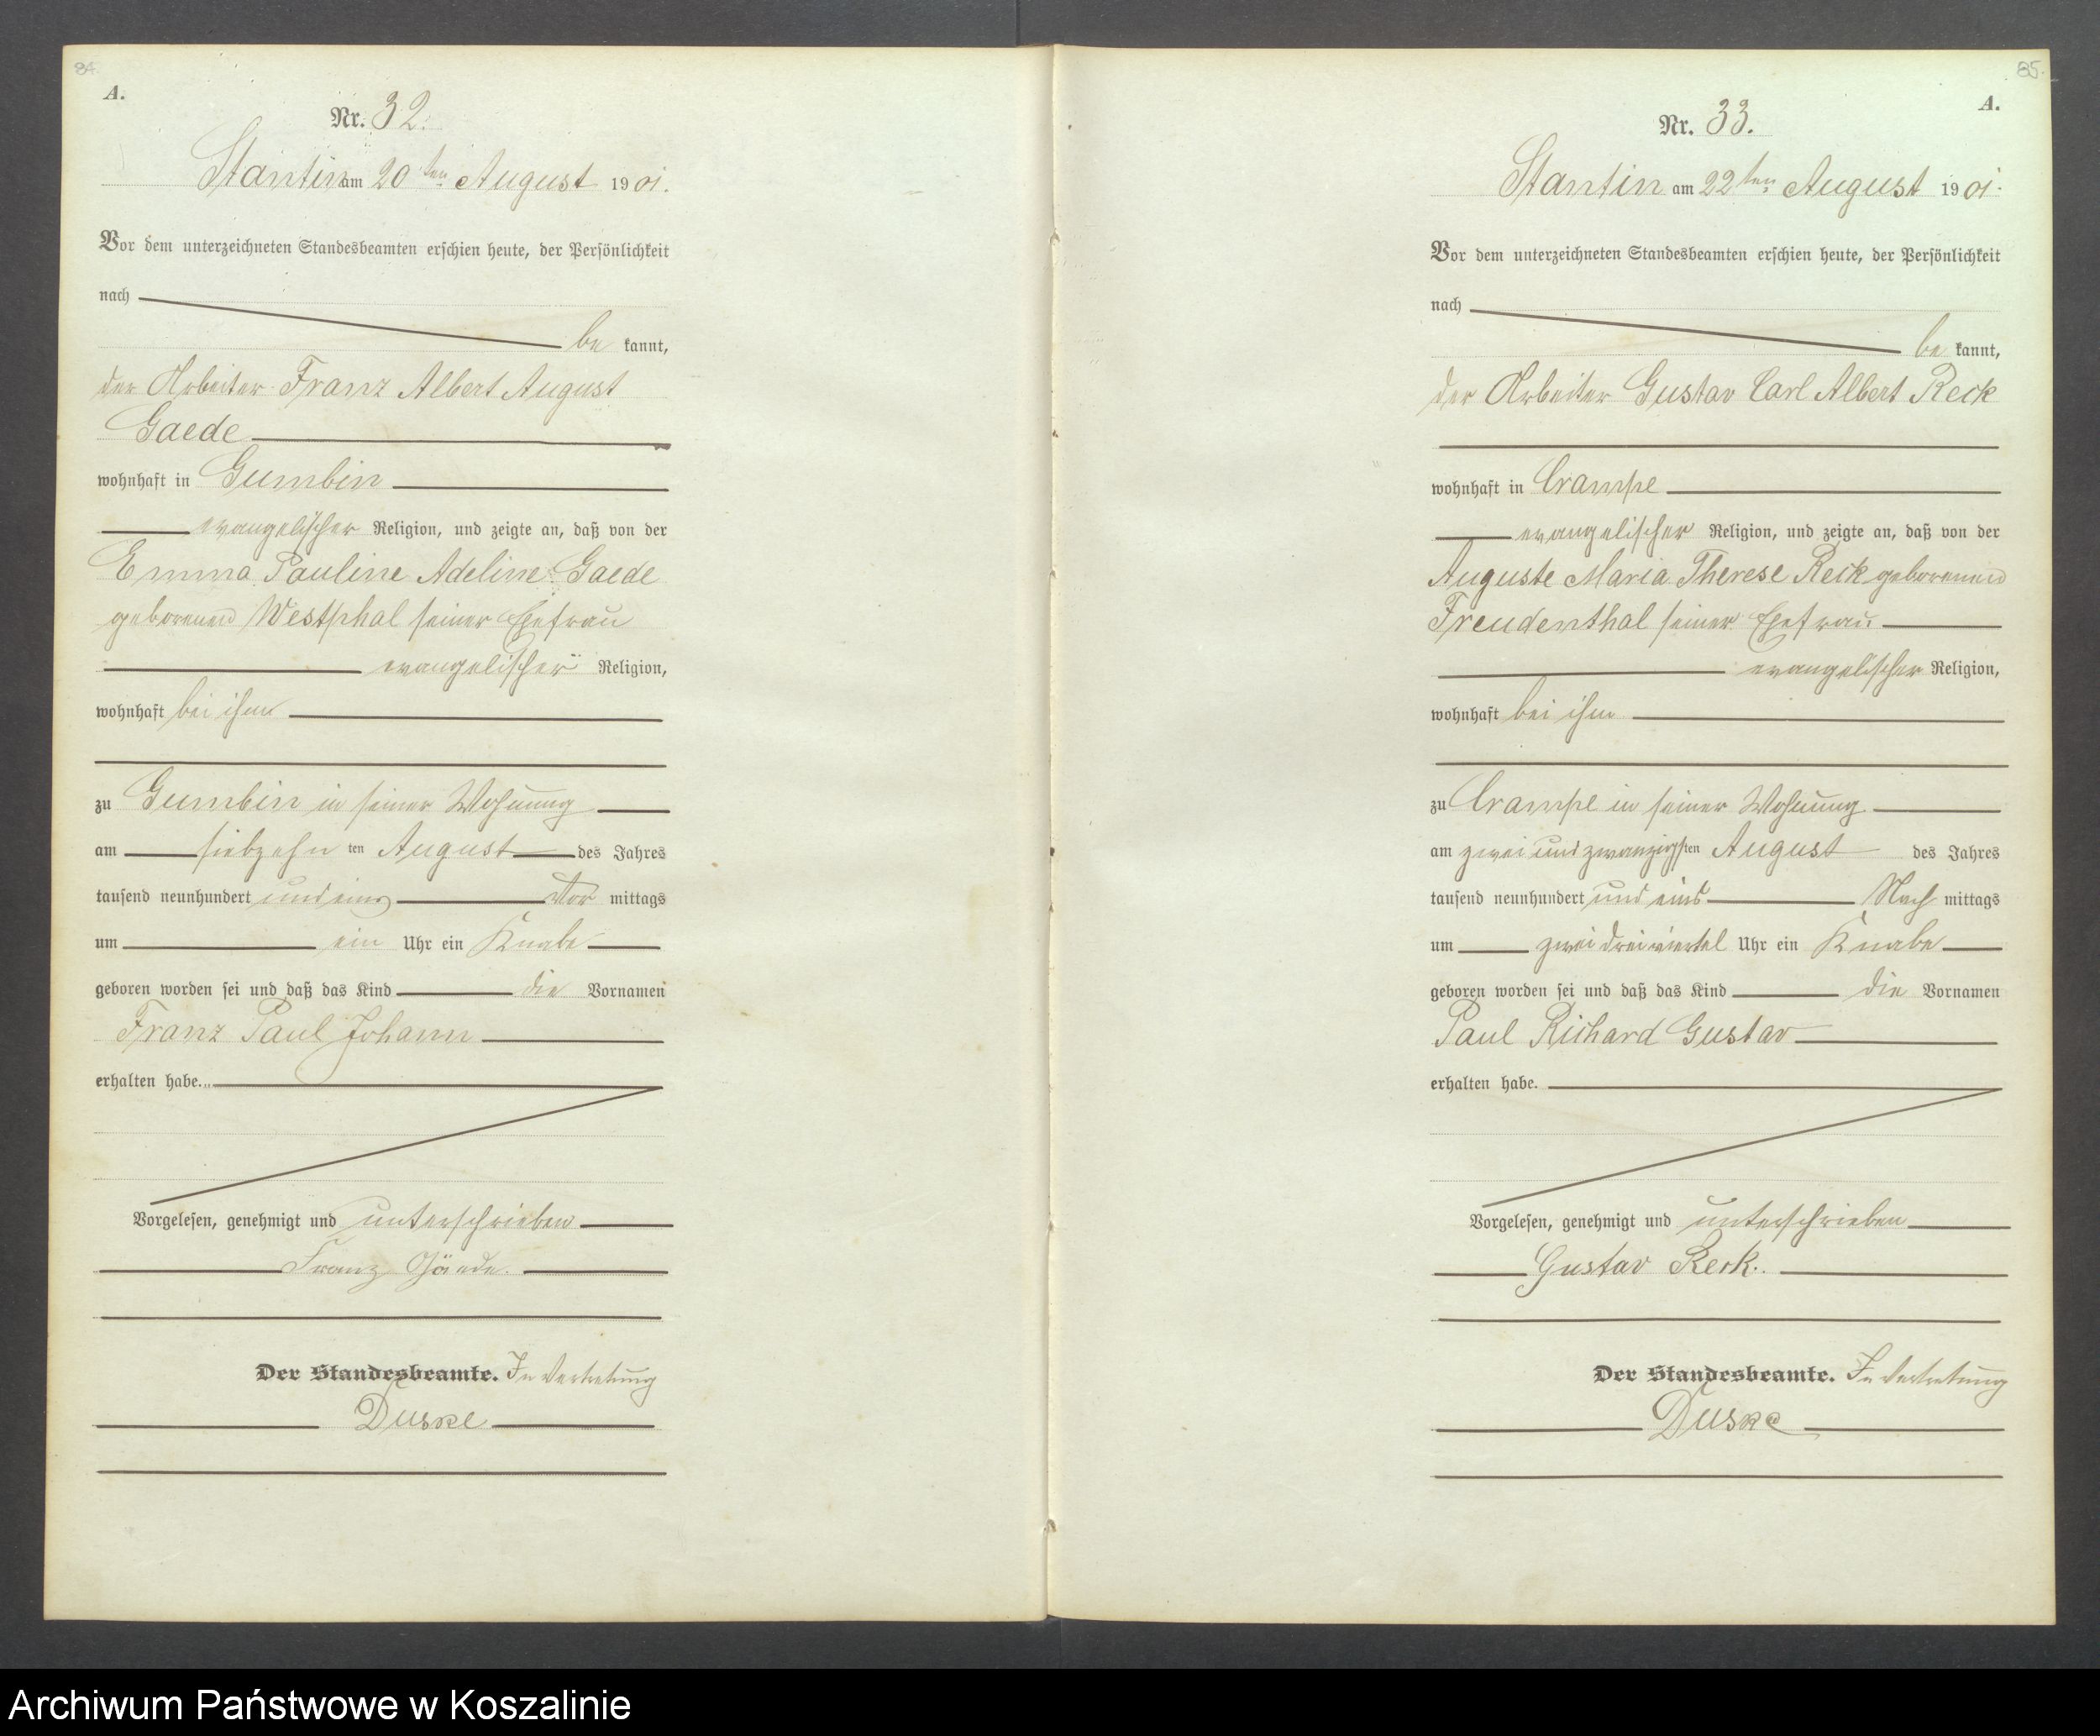 84.
A.
Nr. 32.
Stantin am 20ten August 1901.
Vor dem unterzeichneten Standesbeamten erschien heute, der Persönlichkeit
nach
be kannt,
der Arbeiter Franz Albert August
Gaede
wohnhaft in Gumbin
evangelischer Religion, und zeigte an, daß von der
Emma Pauline Adeline Gaede
geborenen Westphal seiner Ehefrau
evangelischer Religion,
wohnhaft bei ihm
zu Gumbin in seiner Wohnung
am siebzehn ten August des Jahres
tausend neunhundert und eins Vor mittags
um ein Uhr ein Knabe
geboren worden sei und daß das Kind die Vornamen
Franz Paul Johann
erhalten habe.
Vorgelesen, genehmigt und unterschrieben
Franz Gäede.
Der Standesbeamte. In Vertretung
Duske
85.
A.
Nr. 33.
Stantin am 22ten August 1901.
Vor dem unterzeichneten Standesbeamten erschien heute, der Persönlichkeit
nach
be kannt,
der Arbeiter Gustav Carl Albert Reck
wohnhaft in Crampe
evangelischer Religion, und zeigte an, daß von der
Auguste Maria Therese Reck geborenen
Freudenthal seiner Ehefrau
evangelischer Religion,
wohnhaft bei ihm
zu Crampe in seiner Wohnung
am zwei und zwanzigsten August des Jahres
tausend neunhundert und eins Nach mittags
um zwei dreiviertel Uhr ein Knabe
geboren worden sei und daß das Kind die Vornamen
Paul Richard Gustav
erhalten habe.
Vorgelesen, genehmigt und unterschrieben
Gustav Reck.
Der Standesbeamte. In Vertretung
Duske
Archiwum Państwowe w Koszalinie